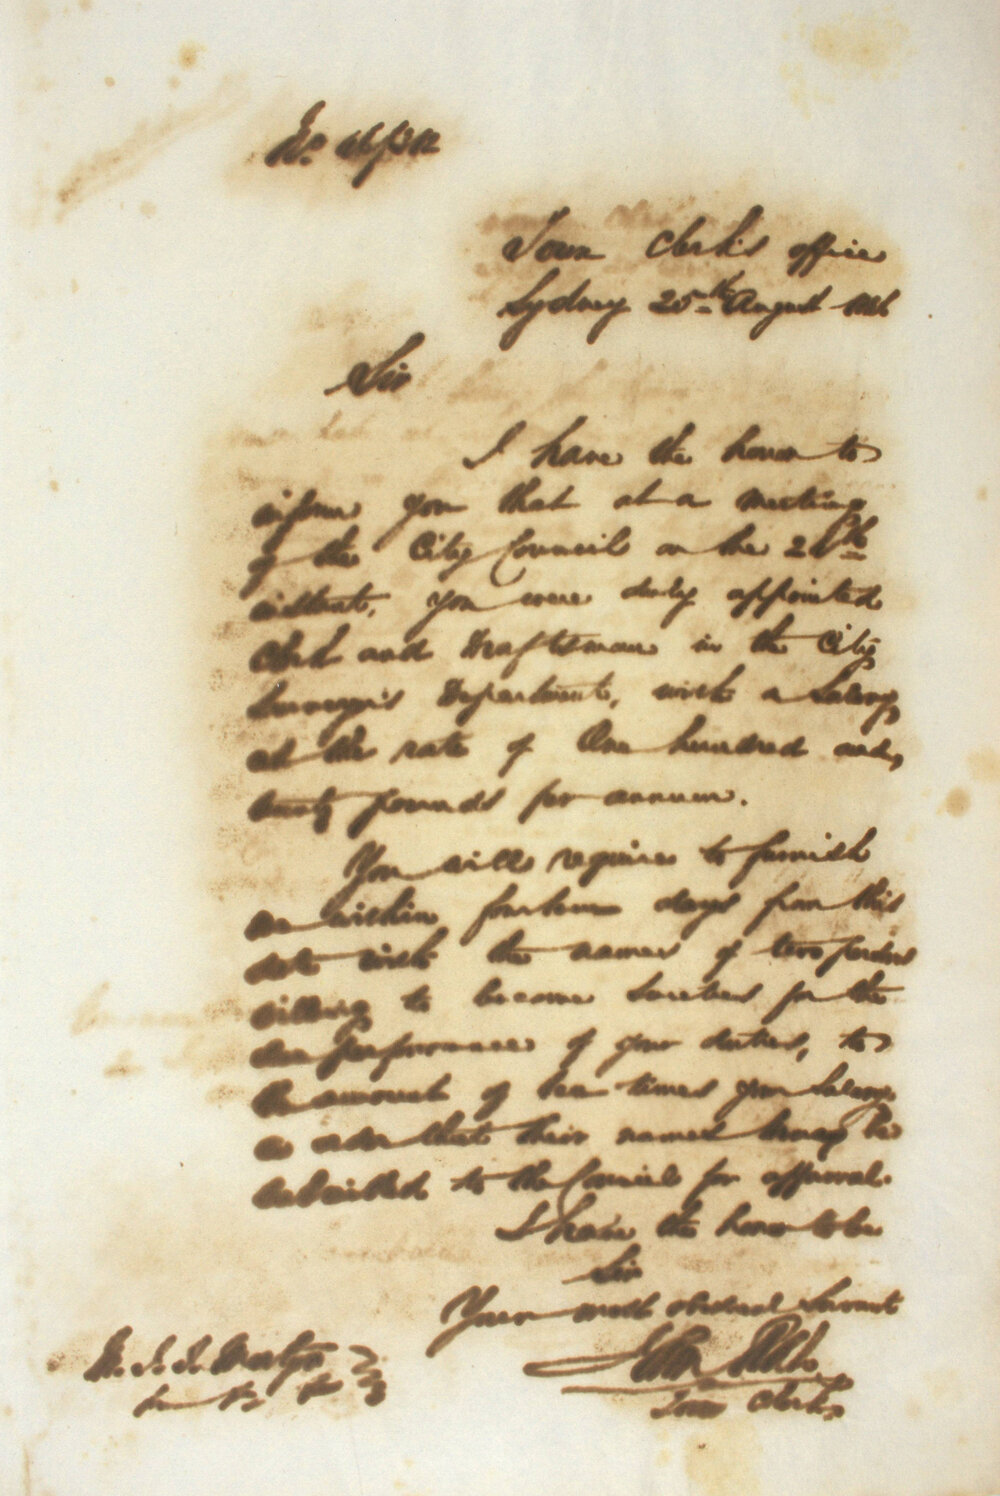 No.
Town Clerk's office
Sydney 25th August
Sir
I have the honor to
inform you that at a meeting
of the City Council on the
instant, you were duly appointed
Clerk and Draftsman in the City
Surveyor's Department, with a Salary
at the rate of One hundred and
pounds per annum.
You will require to furnish
me within fourteen days from this
date with the names of two persons
willing to become Sureties for the
due performance of your duties, to
the amount of ten times your Salary
in order that their names may be
submitted to the Council for approval.
I have the honor to be
Sir
Your most obedient Servant
John
Town Clerk